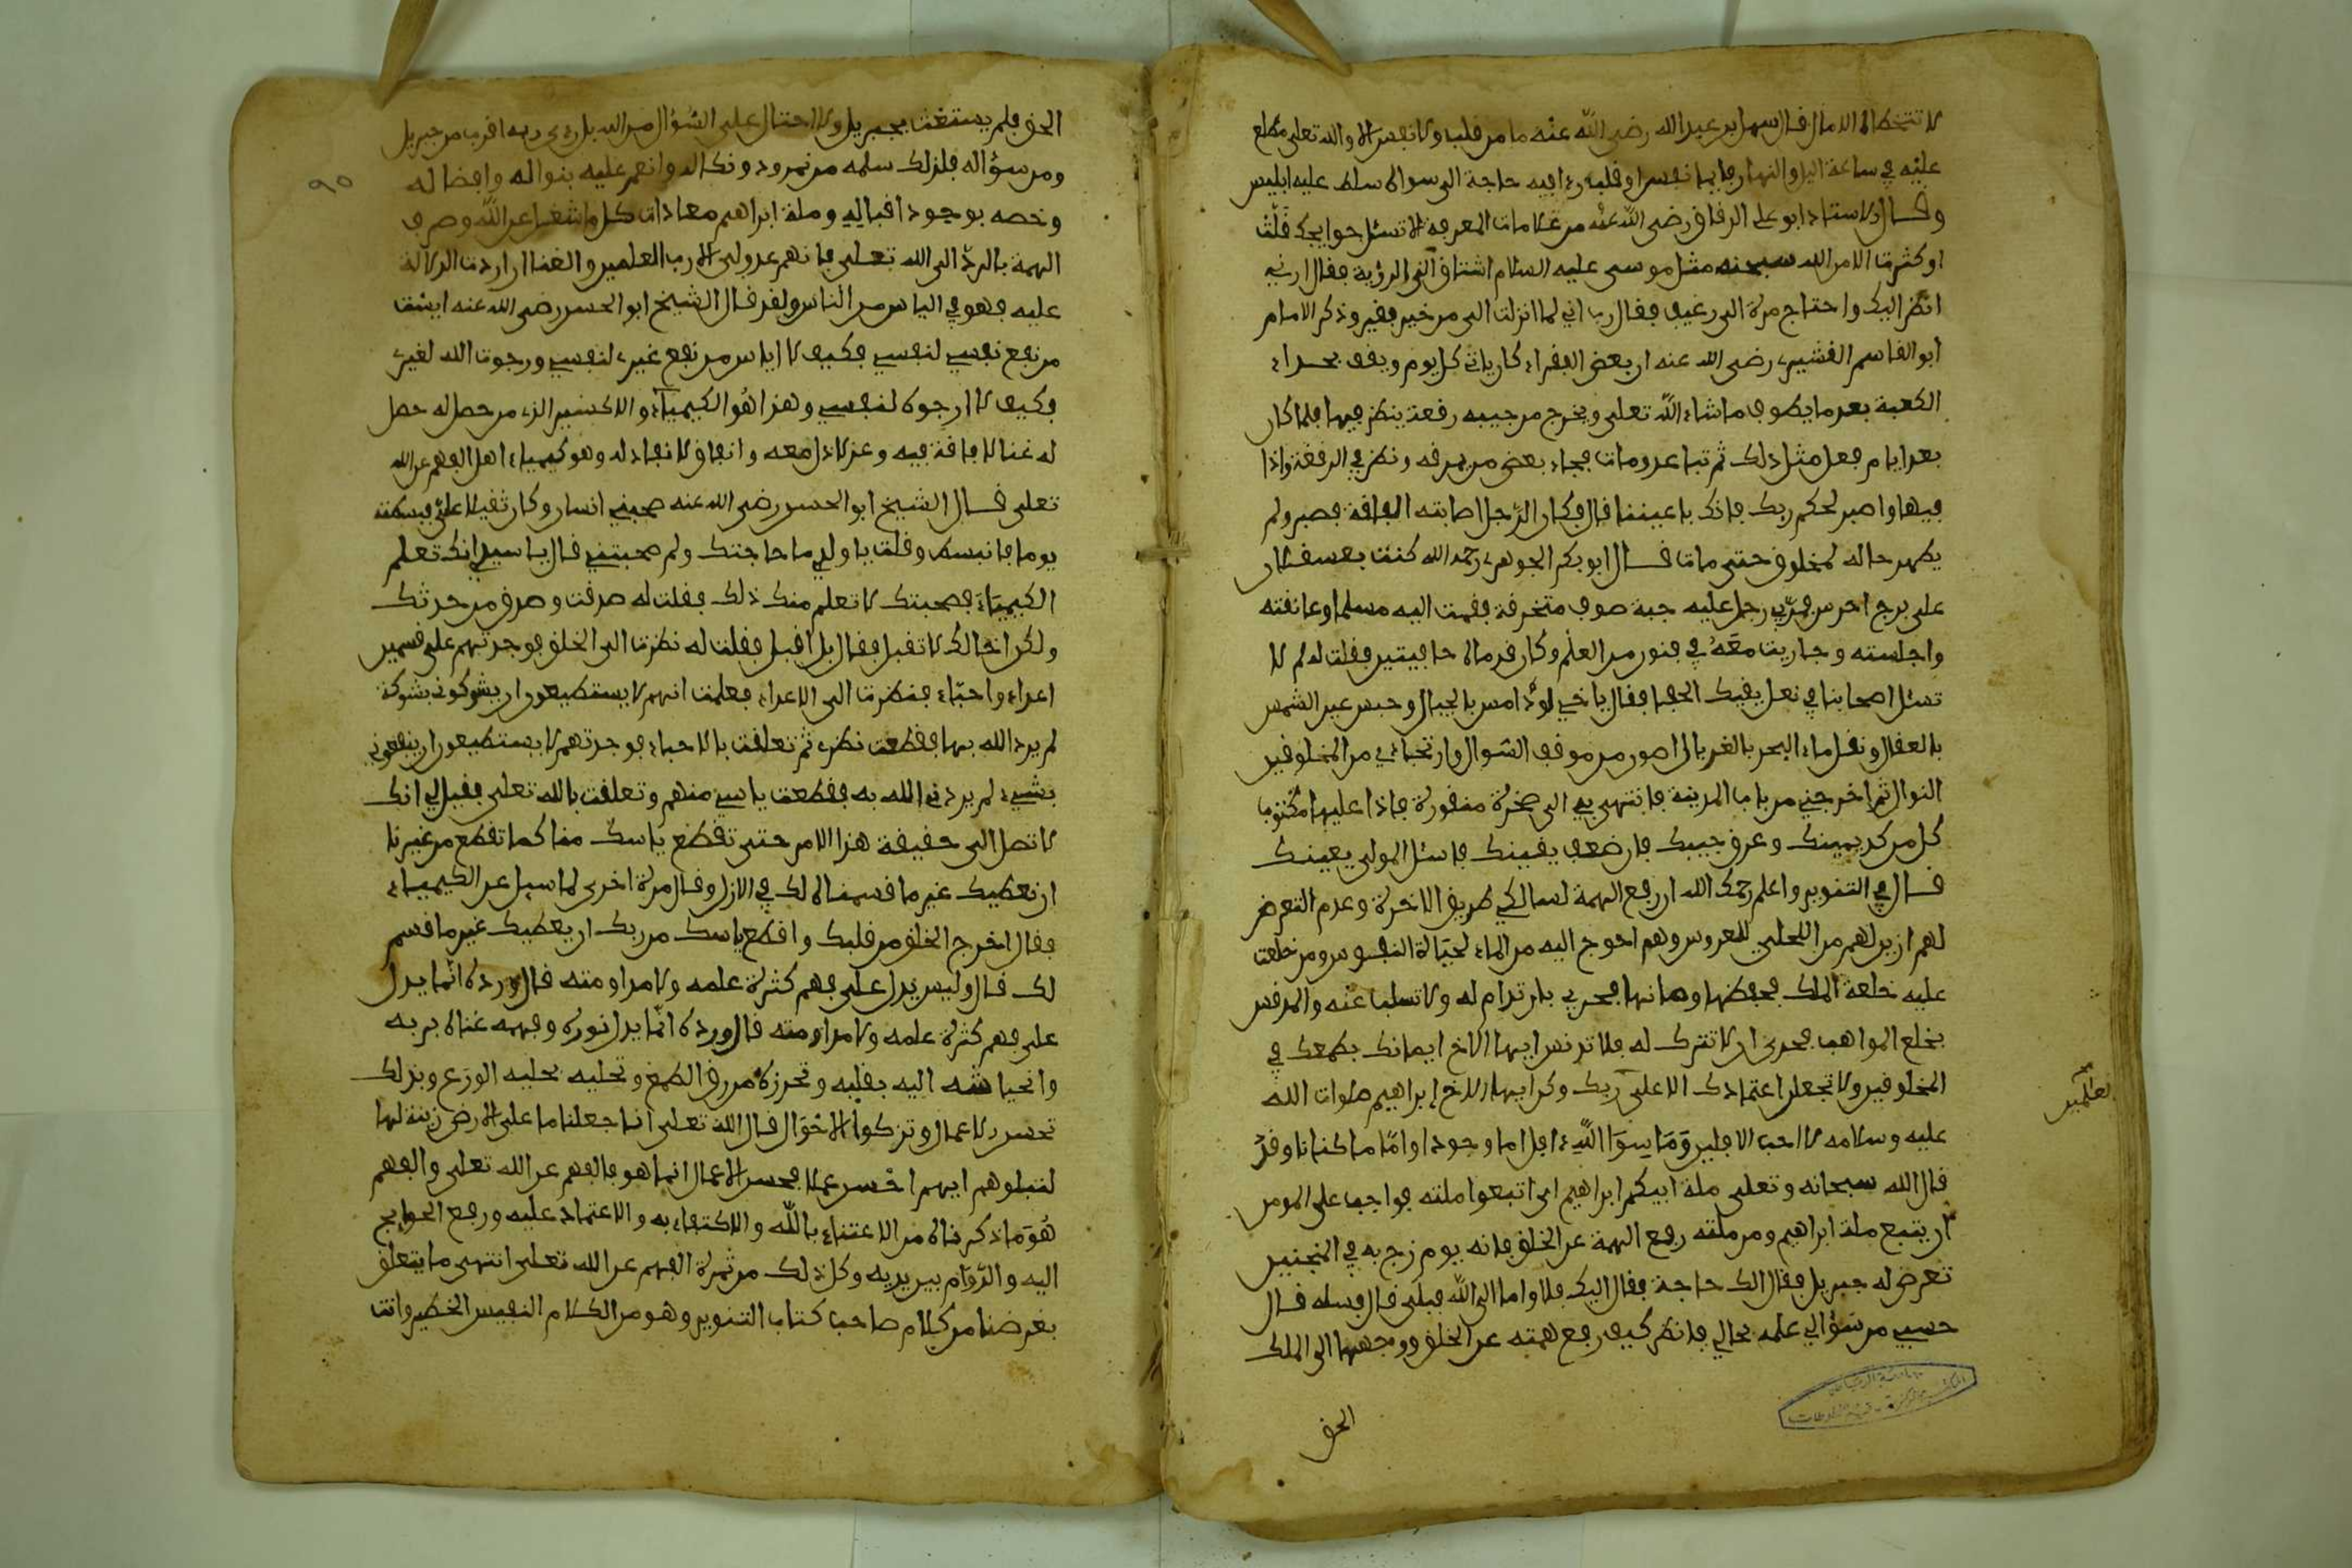 لا تتخطاه الامال قال سهل بن عبد الله رضي الله عنه ما من قلب ولا نفس الا والله تعلى مطلع
عليه في ساعة اليل والنهار فايما نفس او قلب رءا فيه حاجة الى سواه سلط عليه ابليس
وقال الاستاذ ابو علي الدقاق رضي الله عنه من علامات المعرفة الا تسئل حوايجك قلت
او كثرت الا من الله سبحنه مثل موسى عليه السلام اشتاق الى الرؤية فقال ارني
انظر اليك واحتاج مرة الى رغيف فقال رب اني لما انزلت الي من خير فقير وذكر الامام
ابو القاسم القشيري رضي الله عنه ان بعض الفقراء كان ياتي كل يوم ويقف بحذاء
الكعبة بعد ما يطوف ما شاء الله تعلى ويخرج من جيبه رقعة ينظر فيها فلما كان
بعد ايام فعل مثل ذلك ثم تباعد ومات فجاء بعض من يرقبه ونظر في الرقعة واذا
فيها واصبر لحكم ربك فانك باعيننا قال فكان الرجل اصابته الفاقة فصبر ولم
يظهر حاله لمخلوق حتى مات قال ابو بكر الجوهري رحمه الله كنت بعسقلان
على برج احرس فمر بي رجل عليه جبة صوف متخرقة فقمت اليه مسلما وعانقته
واجلسته وجاريت معه في فنون من العلم وكان قدماه حافيتين فقلت له لم لا
تسئل اصحابنا في نعل يقيك الحفا فقال ياخي لرد امس بالحبال وحبس عين الشمس
بالعقال ونقل ماء البحر بالغربال اهون من موقف السوال وارتجاءي من المخلوقين
النوال ثم اخرجني من باب المدينة فانتهى بي الى صخرة منقورة فاذا عليها مكتوب
كل من كد يمينك وعرق جبينك فان ضعف يقينك فاسئل المولى يعينك
قال في التنوير واعلم رحمك الله ان رفع الهمة لسالكي طريق الاخرة وعدم التعرض
لهم ازين لهم من الحلي للعروس وهم احوج اليه من الماء لحياة النفوس ومن خلعت
عليه خلعة الملك فحفظها وصانها فحري بان تدام له ولا تسلب عنه والمدنس
بخلع المواهب فحرى ان لا تترك له فلا تدنس ايها الاخ ايمانك بطمعك في
المخلوقين ولا تجعل اعتمادك الا على ربك وكن ايها الاخ ابراهيم صلوات الله
العلمين
عليه وسلامه لا احب الافلين وما سوا الله ءافل اما وجودا واما امكانا وقد
قال الله سبحانه وتعلى ملة ابيكم ابراهيم اى اتبعوا ملته فواجب على المومن
ان يتبع ملة ابراهيم ومن ملته رفع الهمة عن الخلق فانه يوم زج به في المنجنيق
تعرض له جبريل فقال الك حاجة فقال اليك فلا واما الى الله فبلى قال فسله قال
حسبي من سؤالي علمه بحالي فانظر كيف رفع همته عن الخلق ووجهها الى الملك
الحق
الحق فلم يستغث بجبريل ولا احتال على السؤال من الله بل رءى ربه اقرب من جبريل
ومن سؤاله فلذلك سلمه من نمرود ونكاله وانعم عليه بنواله وافضاله
وخصه بوجود اقباله وملة ابراهيم معادات كل ما شغل عن الله وصرف
الهمة بالرد الى الله تعلى فانهم عدو لي الا رب العلمين والغنا ان اردت الدلالة
عليه فهو في الياس من الناس ولقد قال الشيخ ابو الحسن رضي الله عنه ايست
من نفع نفسي لنفسي فكيف لا اياس من نفع غيري لنفسي ورجوت الله لغيري
فكيف لا ارجوه لنفسي وهذا هو الكيمياء والاكسير الذي من حصل له حصل
له غنا لا فاقة فيه وعز لا ذل معه وانفاق لا نفاد له وهو كيمياء اهل الفهم عن الله
تعلى قال الشيخ ابو الحسن رضي الله عنه صحبني انسان وكان ثقيلا علي فبسطته
يوما فانبسط وقلت يا ولدي ما حاجتك ولم صحبتني قال يا سيدي انك تعلم
الكيمياء فصحبتك لاتعلم منك ذلك فقلت له صدقت وصدق من حدثك
ولكن اخالك لا تقبل فقال بل اقبل فقلت له نظرت الى الخلق فوجدتهم على قسمين
اعداء واحباء فنظرت الى الاعداء فعلمت انهم لا يستطيعون ان يشوكوني بشوكة
لم يرد الله بها فقطعت نظري ثم تعلقت بالاحباء فوجدتهم لا يستطيعون ان ينفعوني
بشيء لم يردني الله به فقطعت ياسي منهم وتعلقت بالله تعلى فقيل لي انك
لا تصل الى حقيقة هذا الامر حتى تقطع ياسك منا كما تقطع من غيرنا
ان نعطيك غير ما قسمناه لك في الازل وقال مرة اخرى لما سيل عن الكيمياء
فقال اخرج الخلق من قلبك واقطع ياسك من ربك ان يعطيك غير ما قسم
لك قال وليس يدل على فهم كثرة علمه ولا مداومته قال ورده انما يدل
على فهم كثرة علمه ولا مداومته قال ورده انما يدل نوره وفهمه غناه بربه
وانحياشه اليه بقلبه وتحرزه من رق الطمع وتحليه بحلية الورع وبذلك
تحسن الاعمال وتزكوا الاحوال قال الله تعلى انا جعلنا ما على الارض زينة لها
لنبلوهم ايهم احسن عملا فحسن الاعمال انما هو فالفهم عن الله تعلى والفهم
هو ما ذكرناه من الاعتناء بالله والاكتفاء به والاعتماد عليه ورفع الحوايج
اليه والدوام بين يديه وكل ذلك من ثمرة الفهم عن الله تعلى انتهى ما يتعلق
بغرضنا من كلام صاحب كتاب التنوير وهو من الكلام النفيس الخطير وانت
٩٥